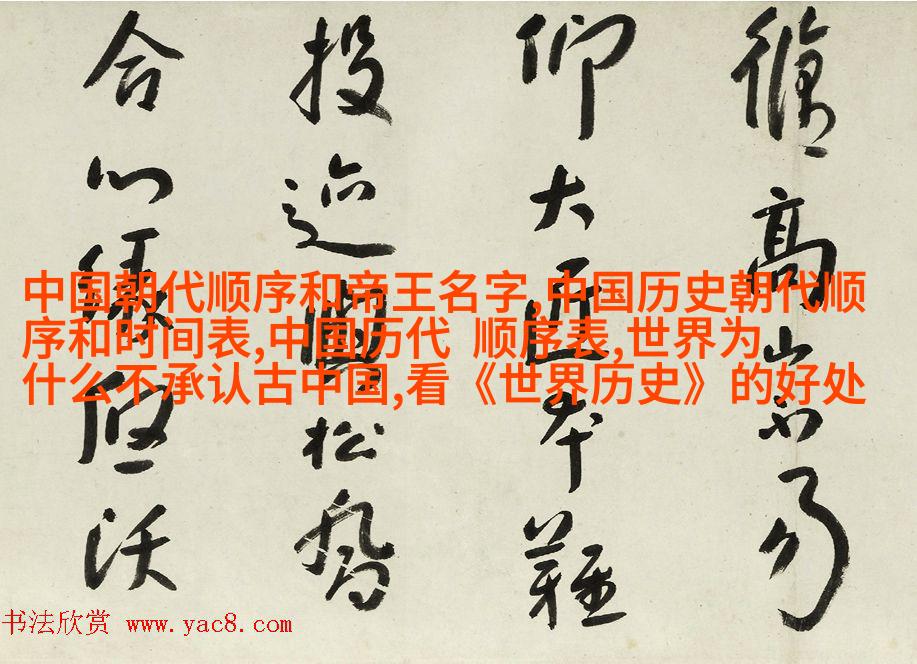 高
仰大匠難
投迹松
合心沃
中国朝代顺序和帝王名字,中国历史朝代顺
序和时间表,中国历代 顺序表,世界为
什么不承认古中国,看《世界历史》的好处
书法欣赏 www.yac8.com